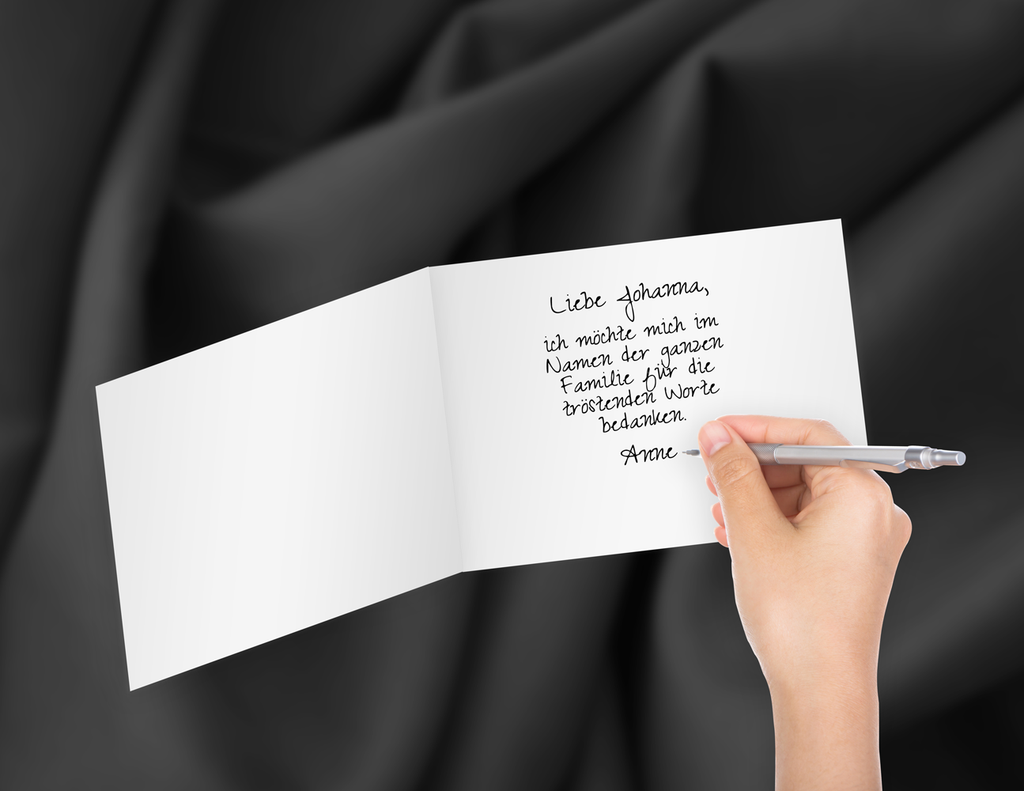 Liebe Johanna,
ich möchte mich im
Namen der ganzen
Familie für die
tröstenden Worte
bedanken.
Anne